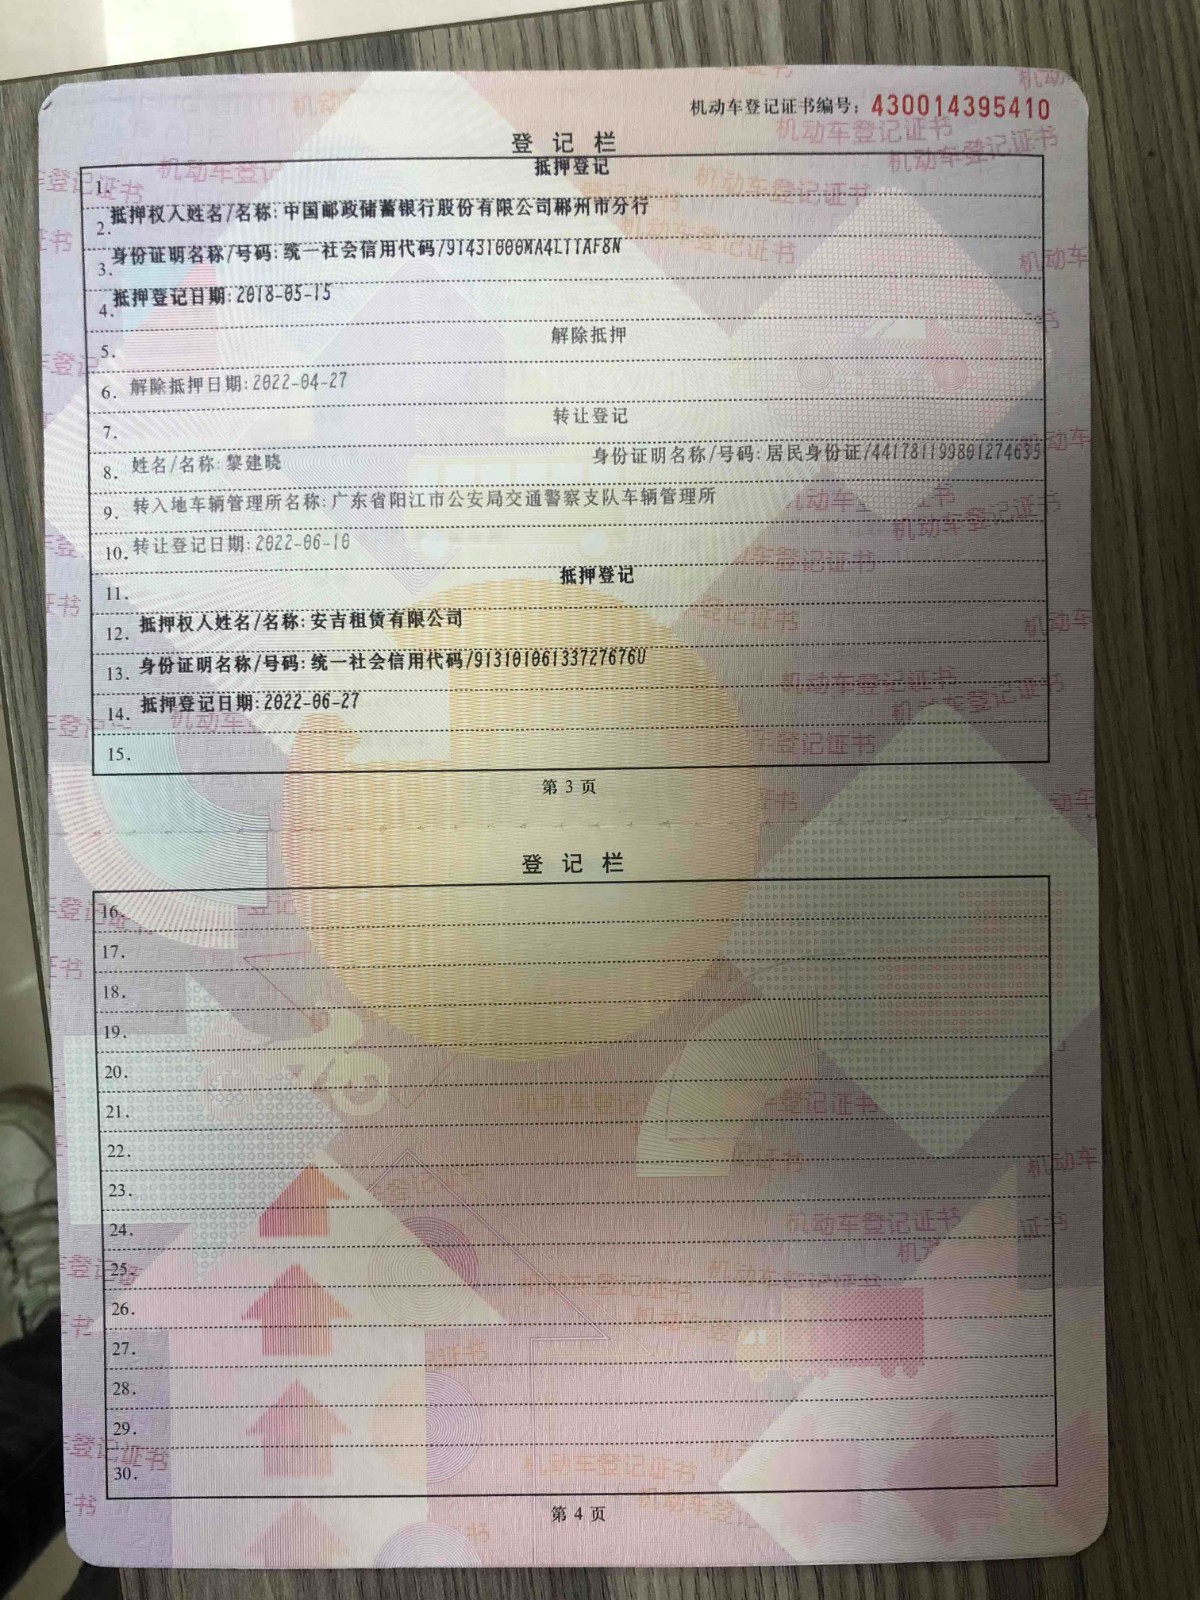 机动车登记证书编号：430014395410
登 记 栏
1. 抵押登记
2. 抵押权人姓名/名称:中国邮政储蓄银行股份有限公司郴州市分行
3. 身份证明名称/号码:统一社会信用代码/91431000MA4L11AF8N
4. 抵押登记日期:2018-05-15
5. 解除抵押
6. 解除抵押日期:2022-04-27
7. 转让登记
8. 姓名/名称:黎建晓 身份证明名称/号码:居民身份证/441781199801274635
9. 转入地车辆管理所名称:广东省阳江市公安局交通警察支队车辆管理所
10. 转让登记日期:2022-06-10
11. 抵押登记
12. 抵押权人姓名/名称:安吉租赁有限公司
13. 身份证明名称/号码:统一社会信用代码/91310106133727676U
14. 抵押登记日期:2022-06-27
15.
第 3 页
登 记 栏
16.
17.
18.
19.
20.
21.
22.
23.
24.
25.
26.
27.
28.
29.
30.
第 4 页